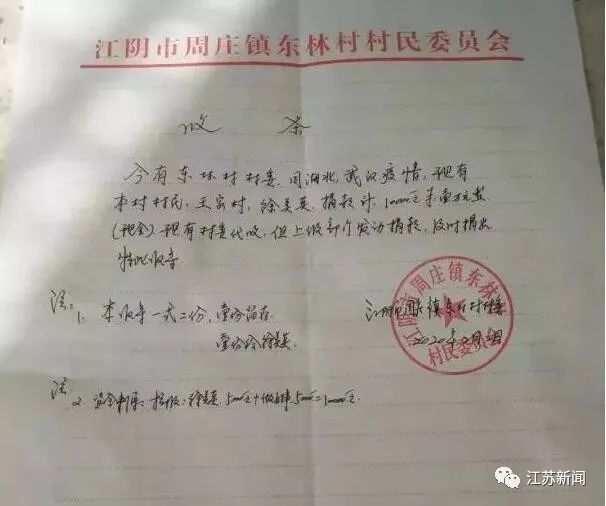 江阴市周庄镇东林村村民委员会
收 条
今有东林村村委,因湖北,武汉疫情,现有
本村村民,王家村,徐美英,捐款计,10000元壹万元整
(现金)现有村委代收,但上级部门发动捐款,及时捐出
特此收条
注:1、本收条一式二份,壹份留存
壹份给徐美英.
江阴市周庄镇东林村村委
2020年2月
江阴市周庄镇东林村
村民委员会
注
2、
徐美英.5000元+ 5000=10000元
江苏新闻